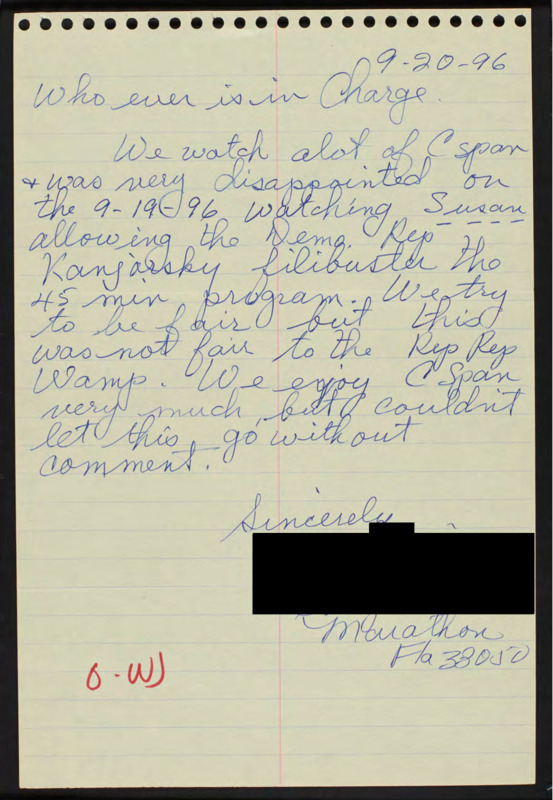 9-20-96
Who ever is in Charge.
We watch alot of C span
+ was very disappointed on
the 9-19-96 watching Susan
allowing the Demo Rep
Kanjorsky filibuster the
45 min program. We try
to be fair but this
was not fair to the Rep Rep
Wamp. We enjoy C Span
very much, but couldn't
let this go without
comment.
Sincerely
Marathon
Fla 33050
O-WJ